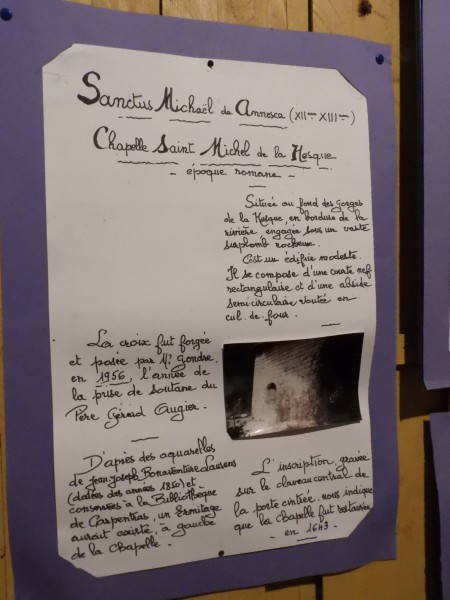 Sanctus Michaël de Annesca (XIIème XIIIème)
Chapelle Saint Michel de la Nesque
- époque romane -
Située au fond des Gorges
de la Nesque, en bordure de la
rivière, engagée sous un vaste
surplomb rocheux.
C'est un édifice modeste.
Il se compose d'une courte nef
rectangulaire et d'une abside
semi-circulaire voutée en
cul. de. four.
La croix fut forgée
et posée par Mr Gendre,
en 1956, l'année de
la prise de soutane du
Père Gérard Augier.
D'après des aquarelles
de Jean Joseph Bonaventure Laurens
(datées des années 1850) et
conservées à la Bibliothèque
de Carpentras, un Ermitage
aurait existé, à gauche
de la Chapelle.
L'inscription, gravée
sur le claveau central de
la porte cintrée, nous indique
que la Chapelle fut restaurée
en 1643.